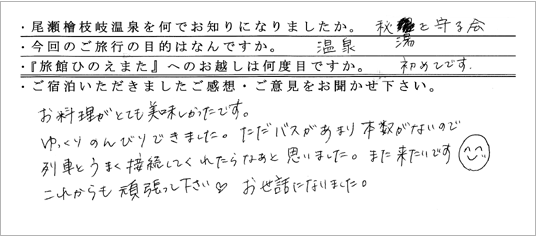 ・尾瀬檜枝岐温泉を何でお知りになりましたか。 秘湯を守る会
・今回のご旅行の目的はなんですか。 温泉
・『旅館ひのえまた』へのお越しは何度目ですか。 初めてです.
・ご宿泊いただきましたご感想・ご意見をお聞かせ下さい。
お料理がとても美味しかったです。
ゆっくりのんびりできました。ただバスがあまり本数がないので
列車とうまく接続してくれたらなあと思いました。また来たいです
これからも頑張って下さい♡ お世話になりました。